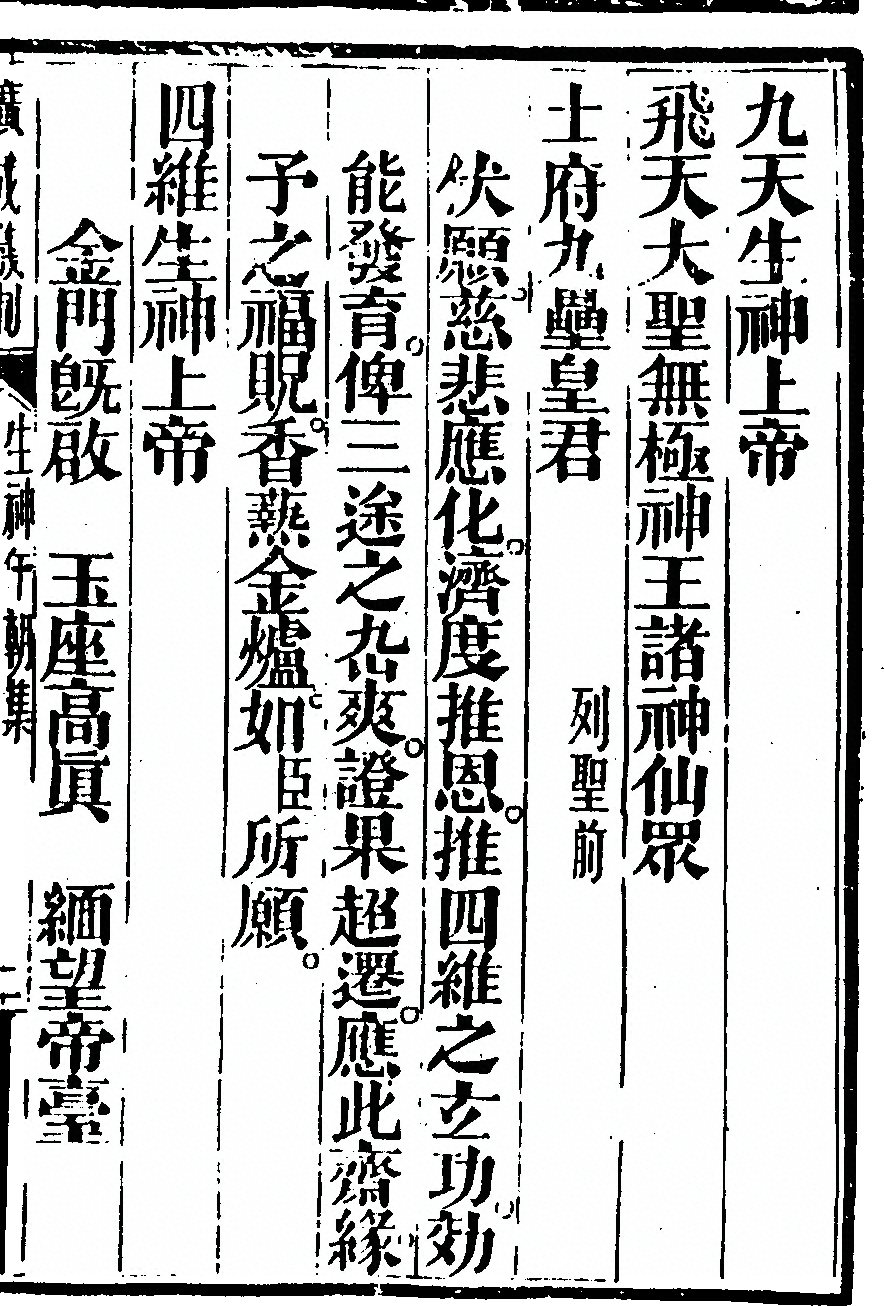 九天生神上帝
飛天大聖無極神王諸神仙眾
土府九壘皇君　列聖前
伏願。慈悲應化。濟度推恩。推四維之立功。効
能發育。俾三途之爽。證果超遷。應此齋緣。
予之福貺。香爇金爐。如臣所願。
四維生神上帝
金門旣啟　玉座高眞　緬望帝臺
廣成儀制　生神午朝集